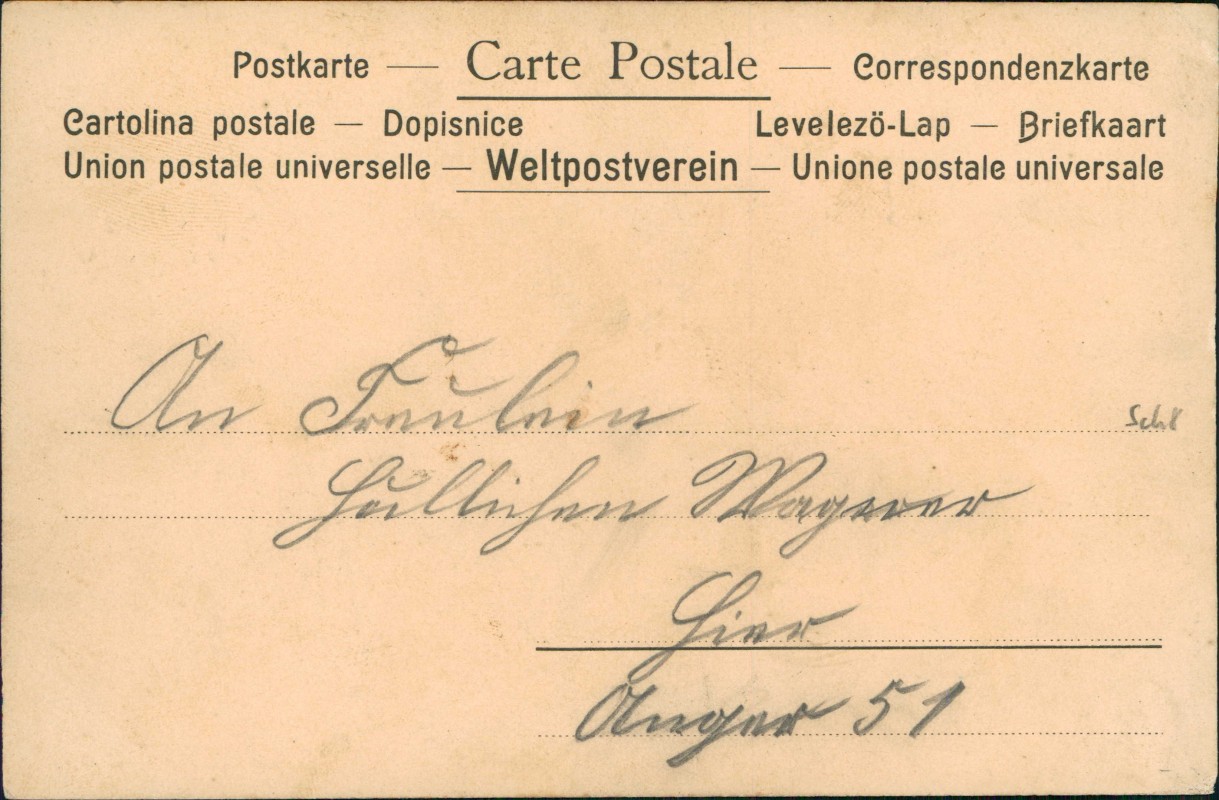 Postkarte — Carte Postale — Correspondenzkarte
Cartolina postale — Dopisnice Levelezö-Lap — Briefkaart
Union postale universelle — Weltpostverein — Unione postale universale
An Fräulein
Wagerer
Hier
Anger 51